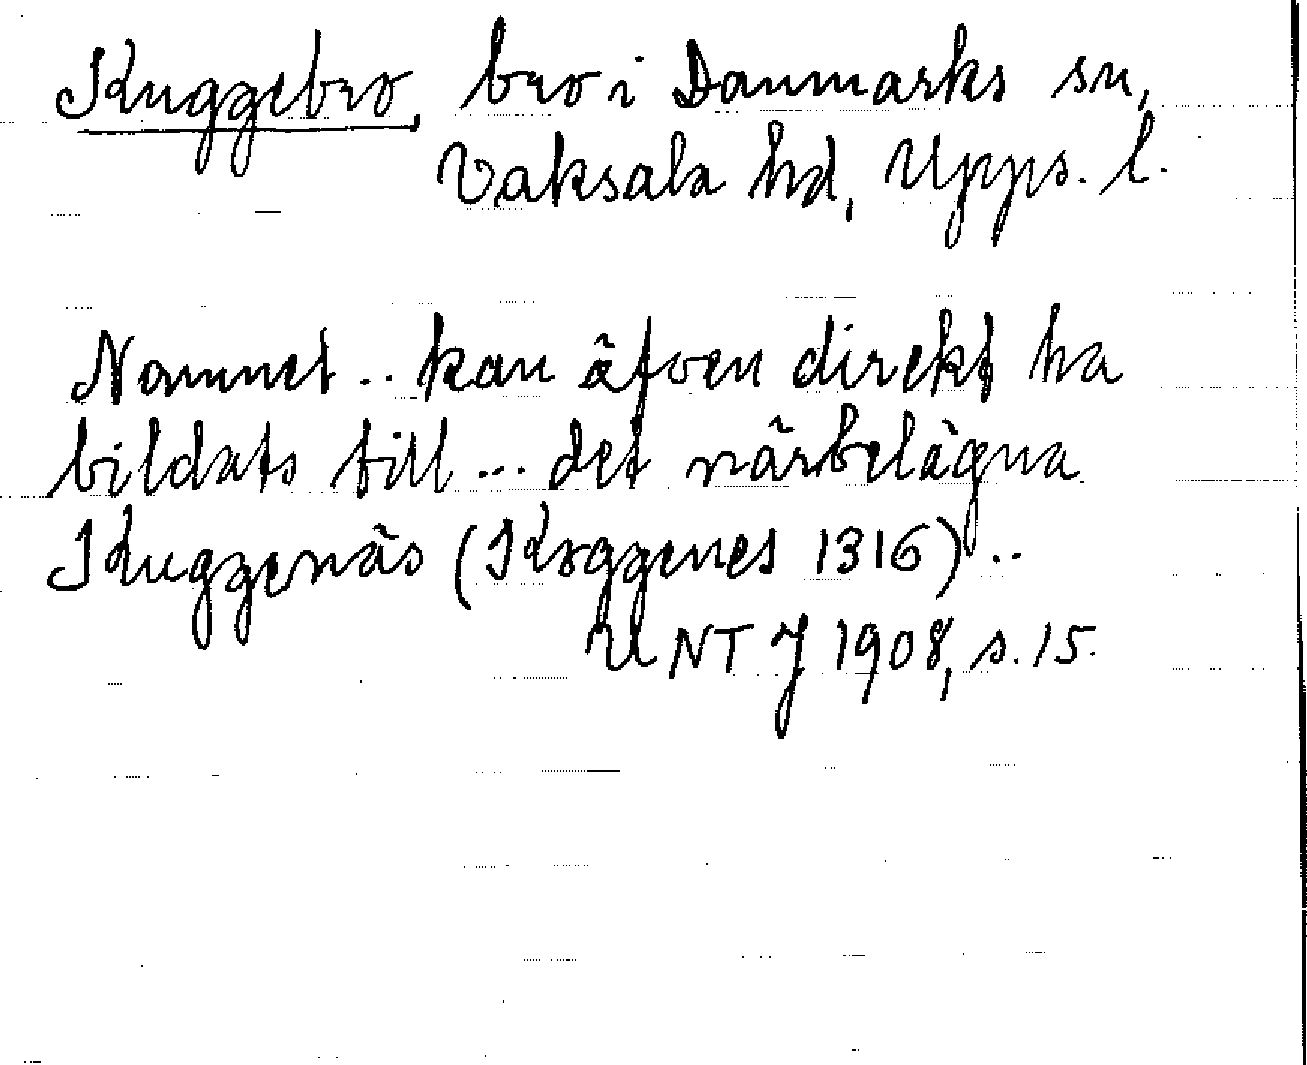 Kuggebro, bro i Danmarks sn,
Vaksala hd, Upps. l.
Namnet .. kan äfven direkt ha
bildats till ... det närbelägna
Kuggenäs (Koggenes 1316) ..
UNTJ 1908, s. 15.